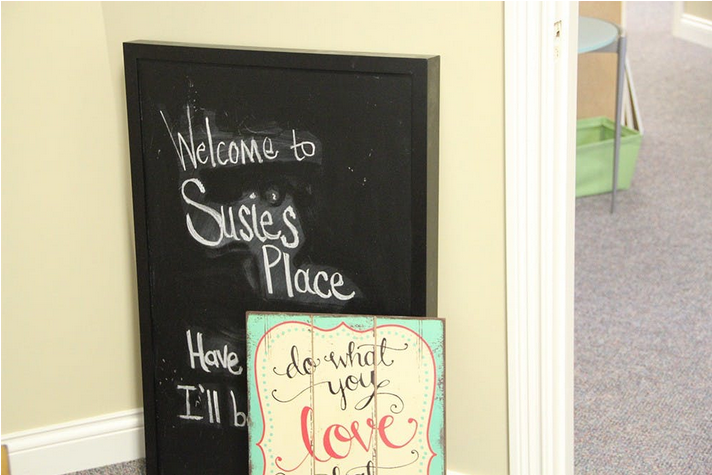 Welcome to
Susie's
Place
Have
I'll
do what
you
love